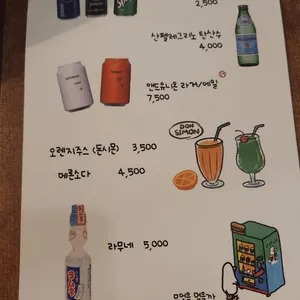 2,500
산펠레그리노 탄산수
4,000
앤드유니온 라거/에일
7,500
DON SIMON
오렌지주스 <돈시몬> 3,500
메론소다 4,500
라무네 5,000